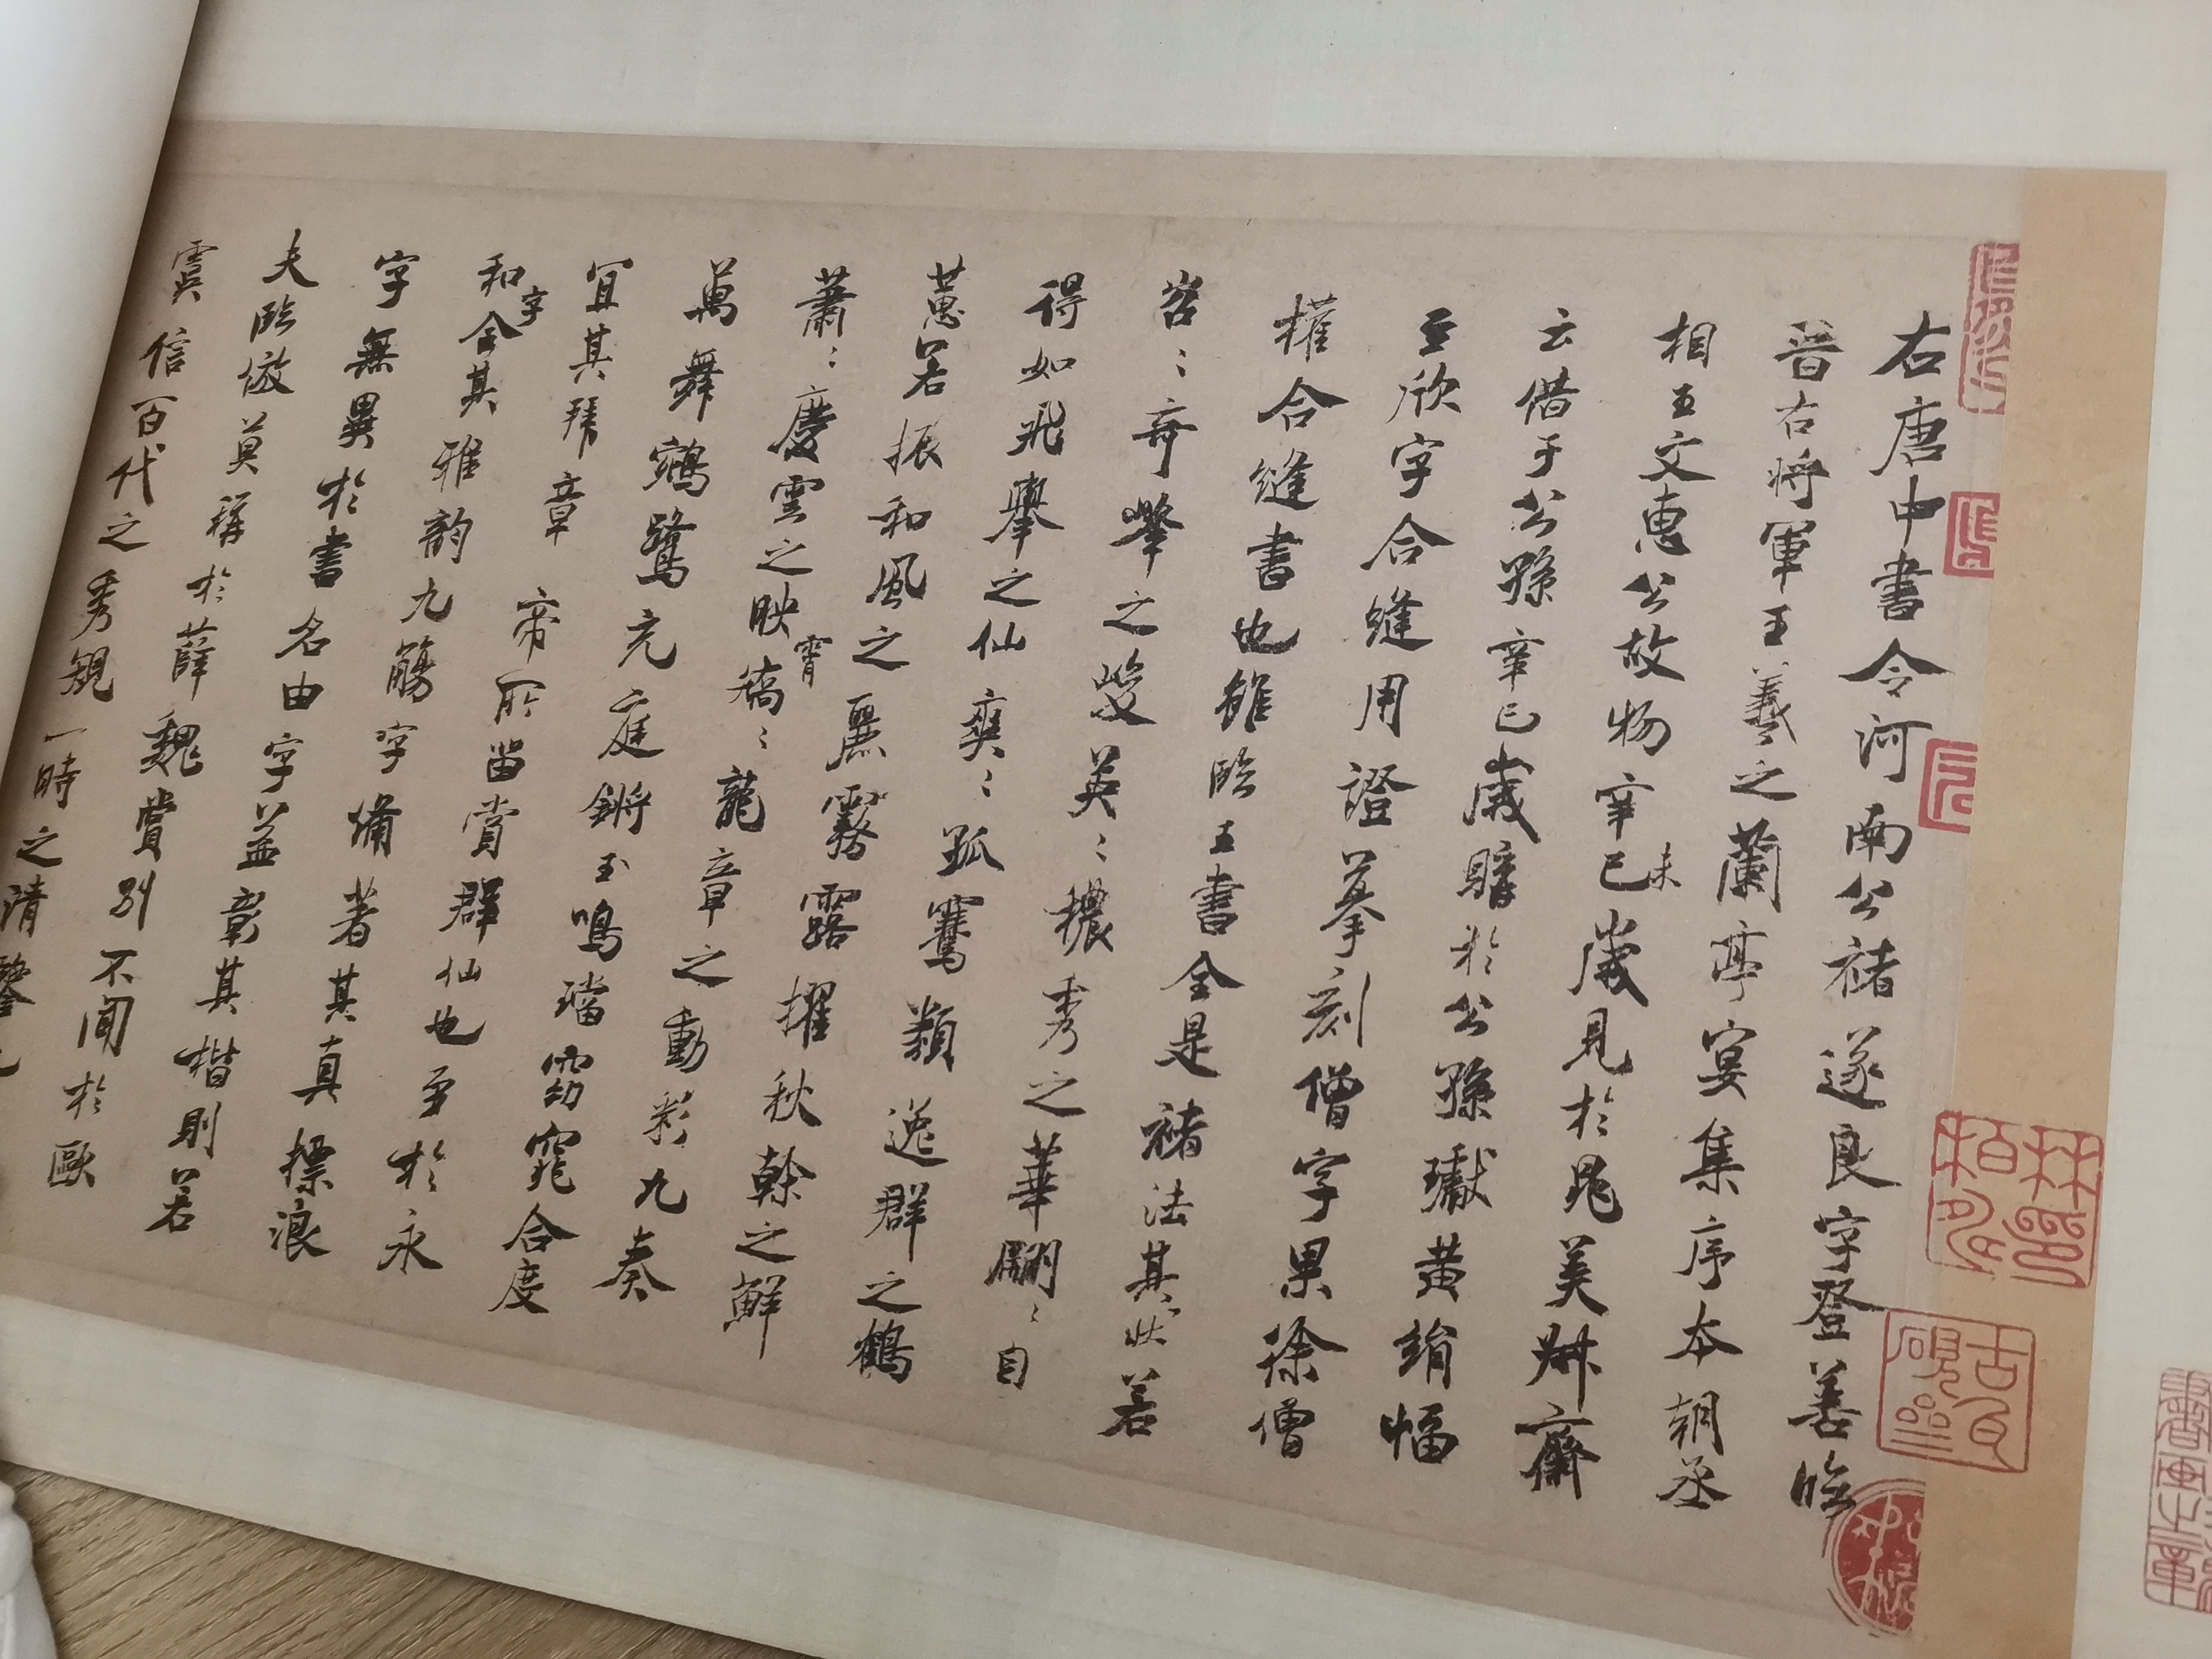 右唐中書令河南公褚遂良字登善臨
晉右將軍王羲之蘭亭宴集序本朝丞
相王文惠公故物辛巳未歲見於晁美叔齋
云借于公孫辛巳歲購於公孫瓛黃絹幅
至欣字合縫用證摹刻僧字果徐僧
權合縫書也雖臨王書全是褚法其狀若
岩〻奇峯之峻英〻穠秀之華翩〻自
得如飛舉之仙爽〻孤騫類逸群之鶴
蕙若振和風之麗霧露擢秋幹之鮮
蕭〻慶雲之映霄矯〻龍章之動彩九奏
萬舞鵷鷺充庭鏘玉鳴璫窈窕合度
宜其拜章帝所留賞群仙也至於永
和字合其雅韵九觴字備著其真摽浪
字無異於書名由字益彰其楷則若
夫臨倣莫稱於薛魏賞別不聞於歐
虞信百代之秀規一時之清鑒也